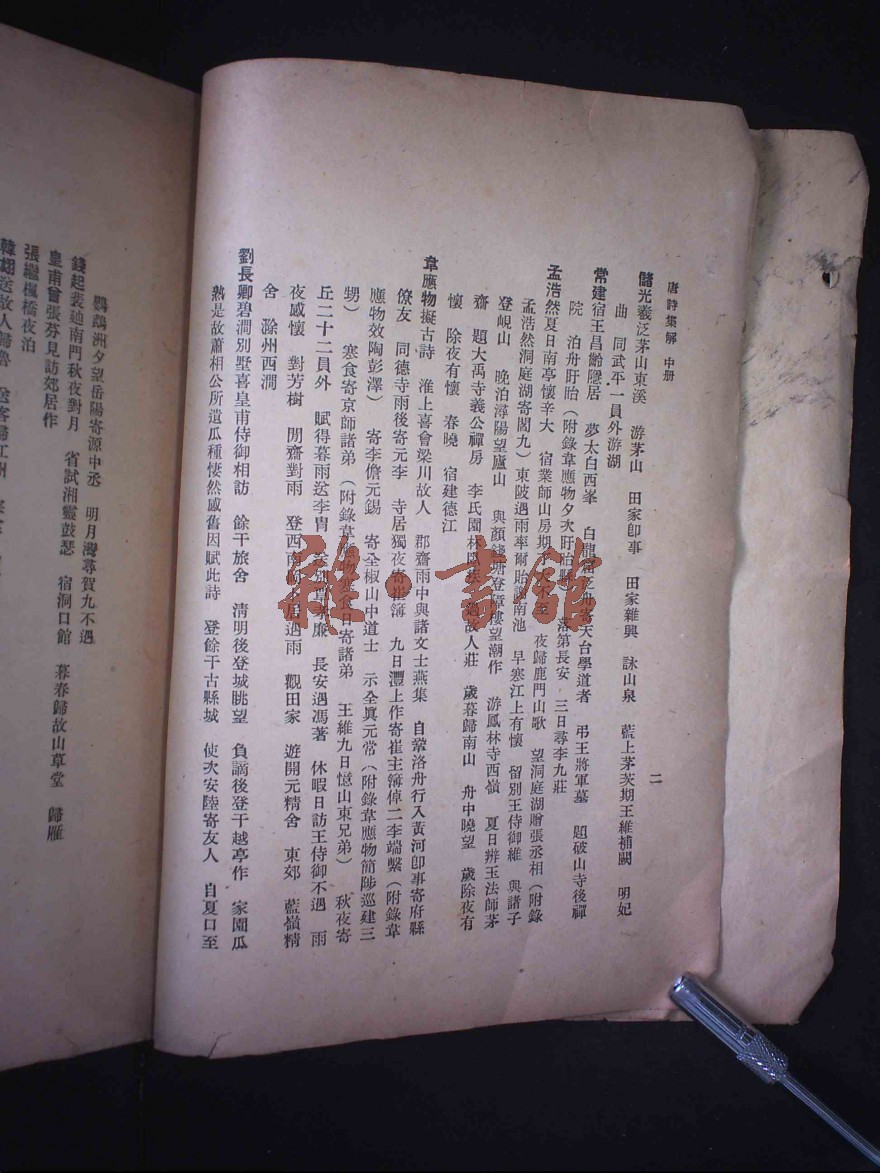 唐詩集解 中册
二
儲光羲泛茅山東溪 游茅山 田家卽事 田家雜興 詠山泉 藍上茅茨期王維補闕 明妃
曲 同武平一員外游湖
常建宿王昌齡隱居 夢太白西峯 白龍窟泛舟寄天台學道者 弔王將軍墓 題破山寺後禪
院 泊舟盱眙（附錄韋應物夕次盱眙縣） 落第長安 三日尋李九莊
孟浩然夏日南亭懷辛大 宿業師山房期丁大不至 夜歸鹿門山歌 望洞庭湖贈張丞相（附錄
孟浩然洞庭湖寄閻九）東陂遇雨率爾貽謝南池 早寒江上有懷 留別王侍御維 與諸子
登峴山 晚泊潯陽望廬山 與顏錢塘登障樓望潮作 游鳳林寺西嶺 夏日辨玉法師茅
齋 題大禹寺義公禪房 李氏園林臥疾 過故人莊 歲暮歸南山 舟中曉望 歲除夜有
懷 除夜有懷 春曉 宿建德江
韋應物擬古詩 淮上喜會梁川故人 郡齋雨中與諸文士燕集 自鞏洛舟行入黃河卽事寄府縣
僚友 同德寺雨後寄元李 寺居獨夜寄崔簿 九日灃上作寄崔主簿倬二李端繫（附錄韋
應物效陶彭澤） 寄李儋元錫 寄全椒山中道士 示全眞元常（附錄韋應物簡陟巡建三
甥） 寒食寄京師諸弟（附錄韋應物寒食日寄諸弟 王維九日憶山東兄弟） 秋夜寄
丘二十二員外 賦得暮雨送李冑 送別覃孝廉 長安遇馮著 休暇日訪王侍御不遇 雨
夜感懷 對芳樹 閒齋對雨 登西南岡居遇雨 觀田家 遊開元精舍 東郊 藍嶺精
舍 滁州西澗
劉長卿碧澗別墅喜皇甫侍御相訪 餘干旅舍 清明後登城眺望 負謫後登干越亭作 家園瓜
熟是故蕭相公所遺瓜種悽然感舊因賦此詩 登餘干古縣城 使次安陸寄友人 自夏口至
鸚鵡洲夕望岳陽寄源中丞 明月灣尋賀九不遇
錢起裴廸南門秋夜對月 省試湘靈鼓瑟 宿洞口館 暮春歸故山草堂 歸雁
皇甫曾張芬見訪郊居作
張繼楓橋夜泊
韓翃送故人歸魯 送客歸江州